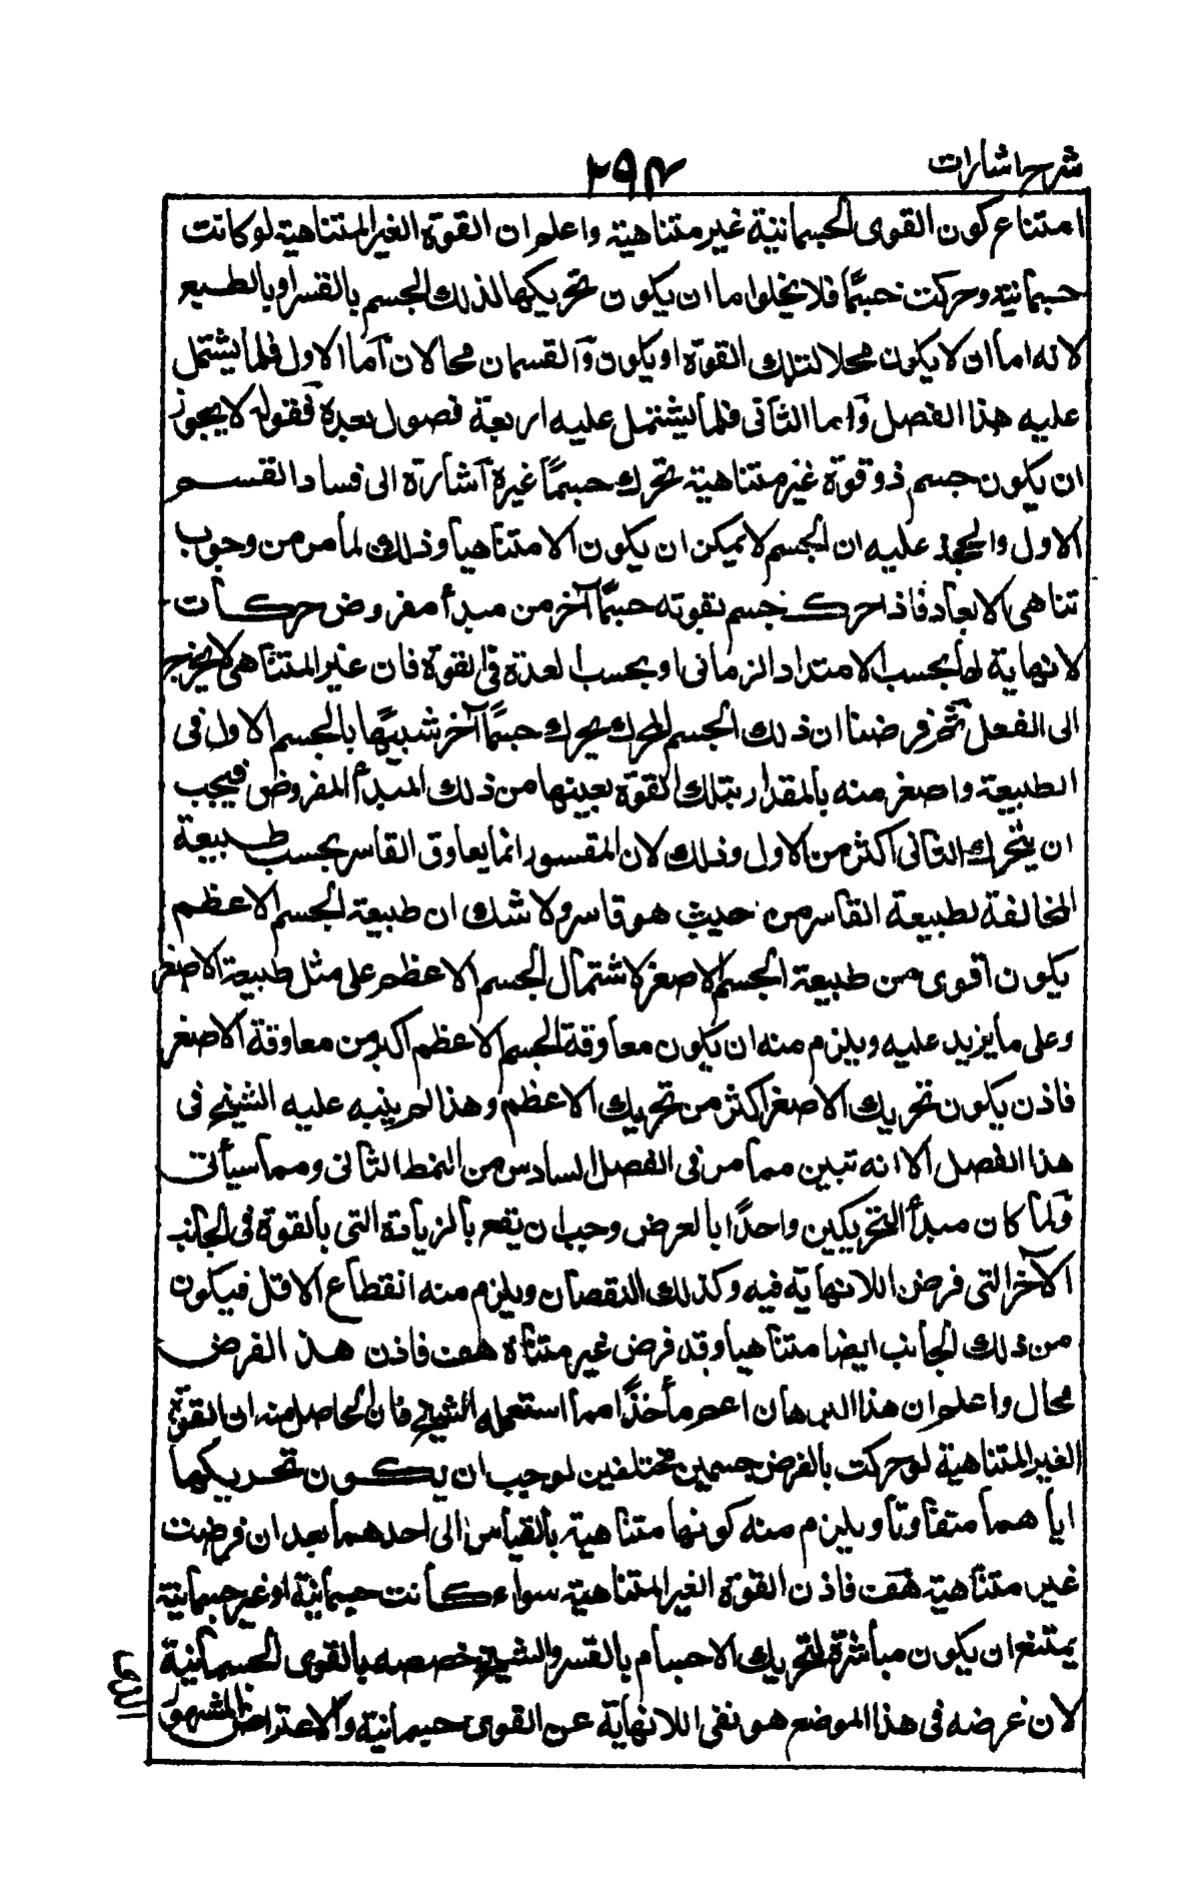 شرح اشارات
٢٩٤
امتناع كون القوى الجسمانية غير متناهية واعلم ان القوة الغير المتناهية لو كانت
جسمانية وحركت جسمًا فلا يخلوا ما ان يكون تحريكها لذلك الجسم بالقسر او بالطبع
لانه اما ان لا يكون محلا لتلك القوة او يكون والقسمان محالان اما الاول فلما يشتمل
عليه هذا الفصل واما الثانى فلما يشتمل عليه اربعة فصول بعده فقوله لا يجوز
ان يكون جسم ذو قوة غير متناهية تحرك جسمًا غيره اشارة الى فساد القسم
الاول والحجة عليه ان الجسم لا يمكن ان يكون الا متناهيا وذلك لما مر من وجوب
تناهى الابعاد فاذا حرك جسم بقوته جسمًا آخر من مبدأ مفروض حركات
لا نهاية لها بحسب الامتداد الزمانى او بحسب العدة فى القوة فان غير المتناهى لا يخرج
الى الفعل ثم فرضنا ان ذلك الجسم المحرك يحرك جسمًا آخر شبيهًا بالجسم الاول فى
الطبيعة واصغر منه بالمقدار بتلك القوة بعينها من ذلك المبدأ المفروض فيجب
ان يتحرك الثانى اكثر من الاول وذلك لان المقسور انما يعاوق القاسر بحسب طبيعة
المخالفة لطبيعة القاسر من حيث هو قاسر ولا شك ان طبيعة الجسم الاعظم
يكون اقوى من طبيعة الجسم الاصغر لاشتمال الجسم الاعظم على مثل طبيعة الاصغر
وعلى ما يزيد عليه ويلزم منه ان يكون معاوقة الجسم الاعظم اكبر من معاوقة الاصغر
فاذن يكون تحريك الاصغر اكثر من تحريك الاعظم وهذا لم ينبه عليه الشيخ فى
هذا الفصل الا انه تبين مما مر فى الفصل السادس من النمط الثانى ومما سيأتى
ولما كان مبدأ التحريكين واحدًا بالعرض وجب ان يقع بالزيادة التى بالقوة فى الجانب
الآخر التى فرض اللانهاية فيه وكذلك النقصان ويلزم منه انقطاع الاقل فيكون
من ذلك الجانب ايضا متناهيا وقد فرض غير متناه هف فاذن هذا الفرض
محال واعلم ان هذا البرهان اعم مأخذًا مما استعمله الشيخ فان الحاصل منه ان القوة
الغير المتناهية لو حركت بالفرض جسمين مختلفين لوجب ان يكون تحريكها
اياهما متفاوتا ويلزم منه كونها متناهية بالقياس الى احدهما بعد ان فرضت
غير متناهية هف فاذن القوة الغير المتناهية سواء كانت جسمانية او غير جسمانية
يمتنع ان يكون مباشرة لتحريك الاجسام بالقسر والشيخ خصصه بالقوى الجسمانية
لان غرضه فى هذا الموضع هو نفى اللانهاية عن القوى جسمانية والاعتراض المشهور